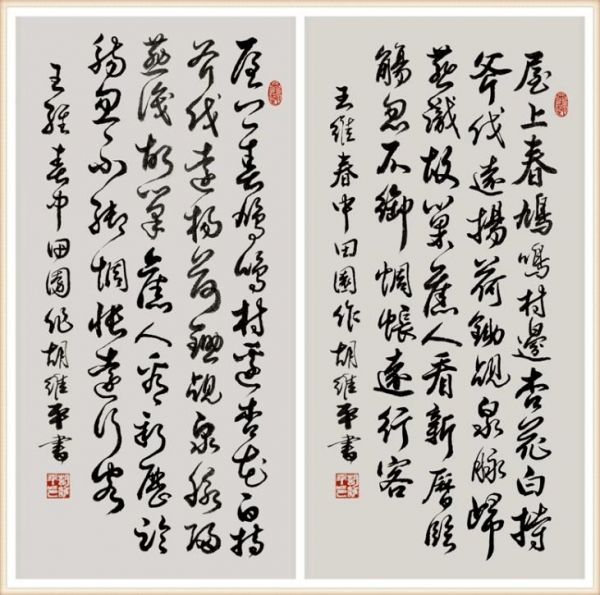 屋上春鳩鳴村邊杏花白持
斧伐遠揚荷鋤覘泉脉歸
燕識故巢舊人看新曆臨
觴忽不御惆悵遠行客
王維春中田園作胡維平書
屋上春鳩鳴村邊杏花白持
斧伐遠揚荷鋤覘泉脉歸
燕識故巢舊人看新歷臨
觴忽不御惆悵遠行客
王維春中田園作胡維平書